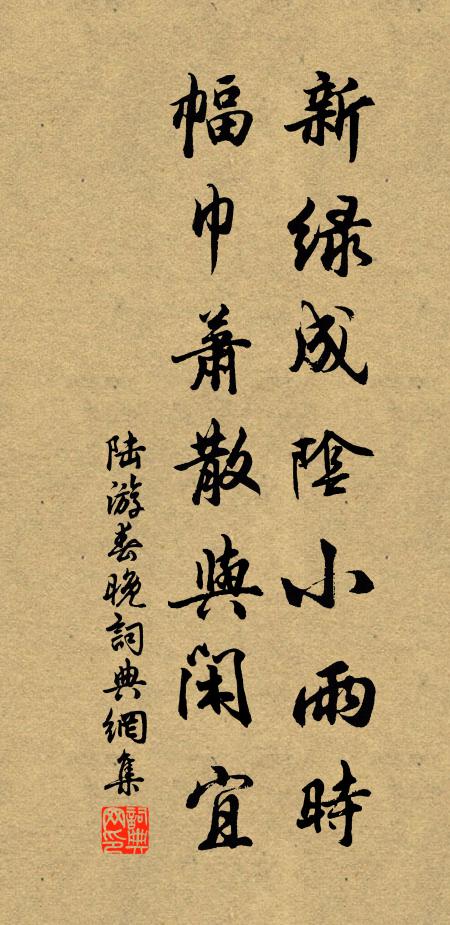 新綠成陰小雨時
幅巾蕭散與閑宜
陸游春晚詞典網集
詞典
网印